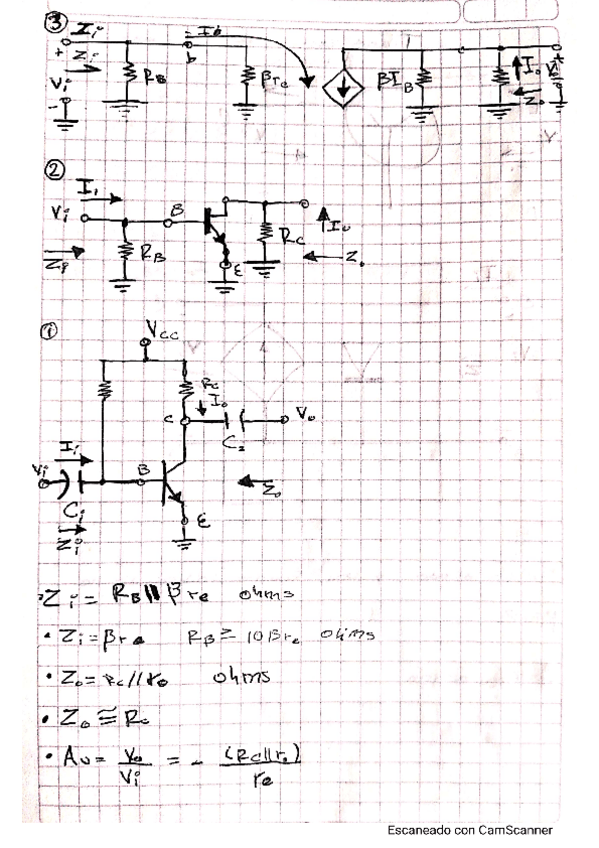 ③ Ii Ib
+ Zi b RB βre βIB Io Vo +
Vi Zo
-
②
Ii
Vi B RC Io
Zi RB E Zo
①
Vcc
Rc
Io
C Vo
C2
Ii
Vi B Zo
Ci E
Zi
Zi = RB || βre ohms
• Zi = βre RB ≥ 10βre ohms
• Zo = Rc//ro ohms
• Zo ≅ Rc
• Av = Vo/Vi = - (Rc||ro)/re
Escaneado con CamScanner